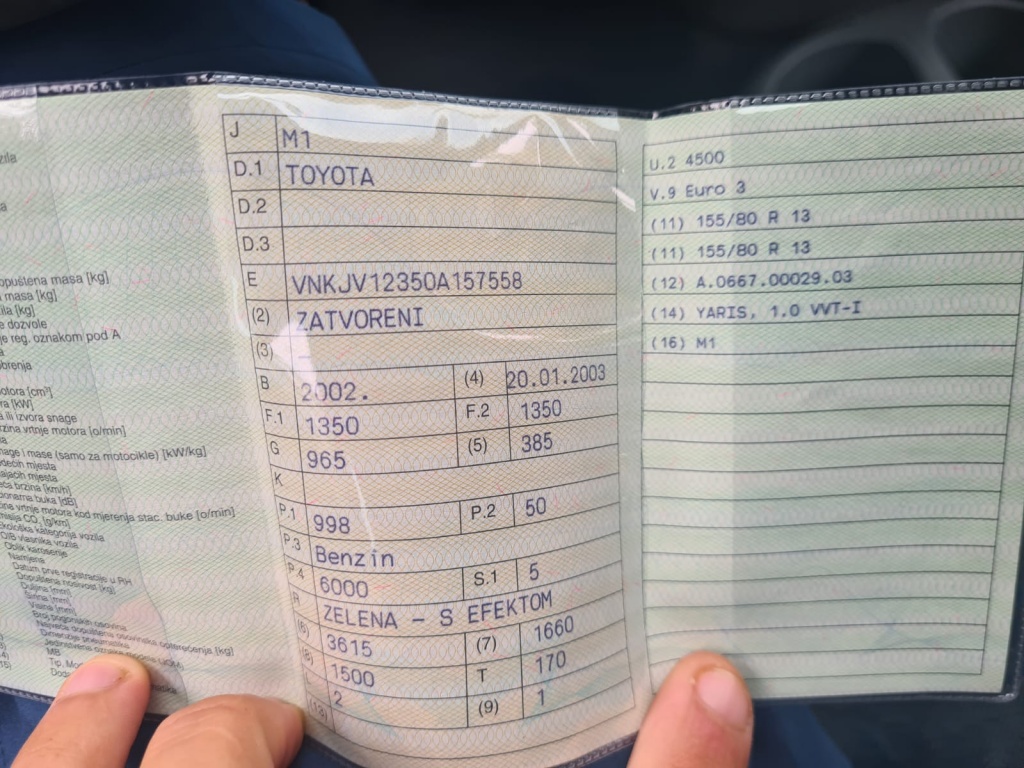 zila
a
opuštena masa [kg]
masa [kg]
ila [kg]
e dozvole
e reg. oznakom pod A
a
obrenja
otora [cm³]
ra [kW]
a ili izvora snage
rzina vrtnje motora [o/min]
na
nage i mase (samo za motocikle) [kW/kg]
dećih mjesta
jaćih mjesta
ća brzina [km/h]
onarna buka [dB]
ina vrtnje motora kod mjerenja stac. buke [o/min]
misija CO₂ [g/km]
Ekološka kategorija vozila
OIB vlasnika vozila
Oblik karoserije
Namjena
Datum prve registracije u RH
Dopuštena nosivost [kg]
Duljina [mm]
Širina [mm]
Visina [mm]
Broj pogonskih osovina
Najveća dopuštena osovinska opterećenja [kg]
Dimenzije pneumatika
MB
Tip, Mo
Doda
J M1
D.1 TOYOTA
D.2
D.3
E VNKJV12350A157558
(2) ZATVORENI
(3) –
B 2002. (4) 20.01.2003
F.1 1350 F.2 1350
G 965 (5) 385
K
P.1 998 P.2 50
P.3 Benzin
P.4 6000 S.1 5
R ZELENA – S EFEKTOM
(6) 3615 (7) 1660
(8) 1500 T 170
2 (9) 1
(13)
U.2 4500
V.9 Euro 3
(11) 155/80 R 13
(11) 155/80 R 13
(12) A.0667.00029.03
(14) YARIS, 1.0 VVT-I
(16) M1